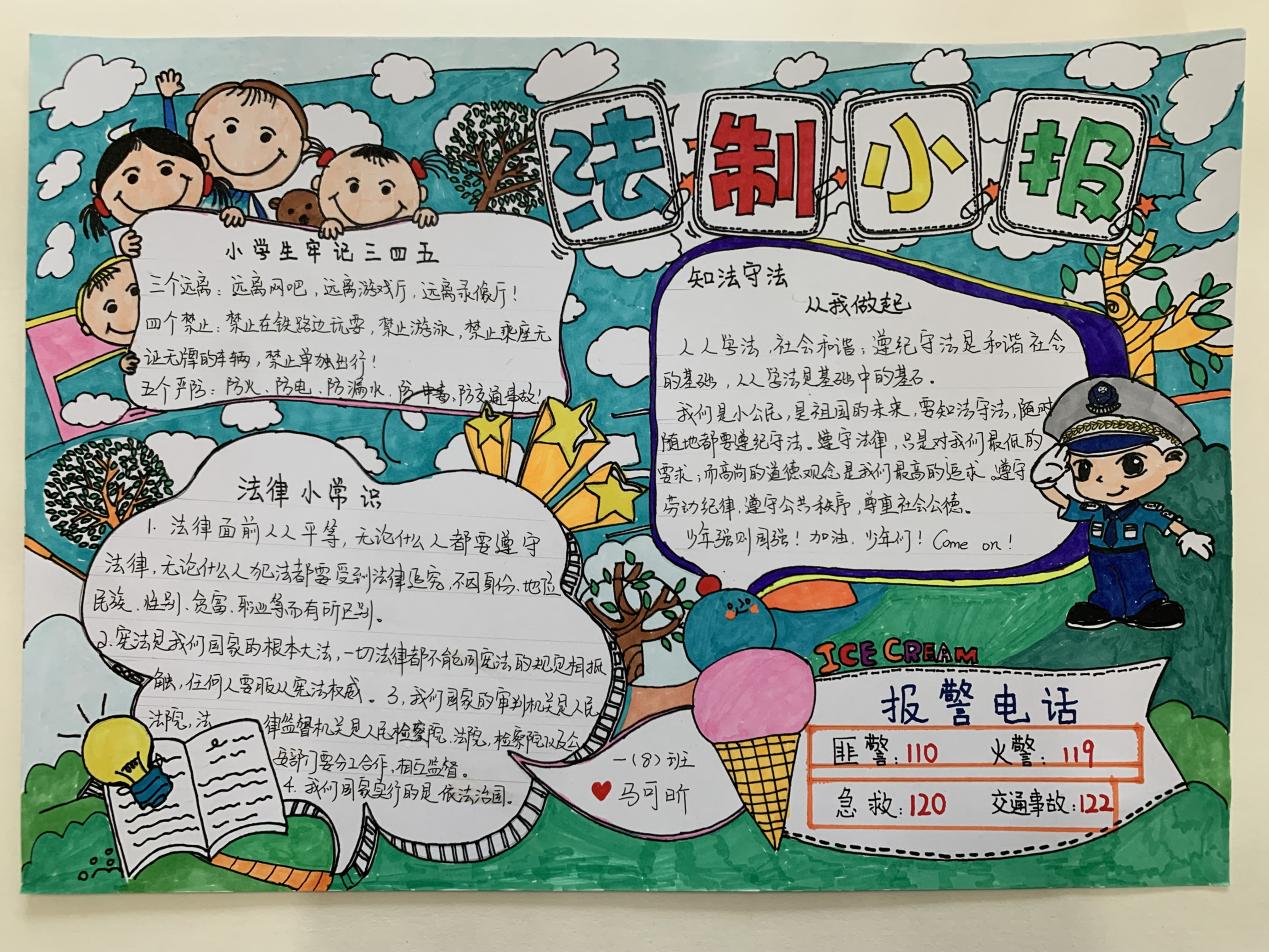 法制小报
小学生牢记三四五
三个远离：远离网吧，远离游戏厅，远离录像厅！
四个禁止：禁止在铁路边玩耍，禁止游泳，禁止乘座无
证无牌的车辆，禁止单独出行！
五个严防：防火、防电、防漏水、防中毒，防交通事故！
知法守法
从我做起
人人学法，社会和谐；遵纪守法是和谐社会
的基础，人人学法是基础中的基石。
我们是小公民，是祖国的未来，要知法守法，随时
随地都要遵纪守法。遵守法律，只是对我们最低的
要求；而高尚的道德观念是我们最高的追求。遵守
劳动纪律，遵守公共秩序，尊重社会公德。
少年强则国强！加油，少年们！Come on！
法律小常识
1. 法律面前人人平等，无论什么人都要遵守
法律，无论什么人犯法都要受到法律追究，不因身份、地位
民族、性别、贫富、职业等而有所区别。
2.宪法是我们国家的根本大法，一切法律都不能同宪法的规定相抵
触，任何人要服从宪法权威。3，我们国家的审判机关是人民
法院，法 律监督机关是人民检察院，法院，检察院以及公
安部门要分工合作，相互监督。
4. 我们国家实行的是依法治国。
一(8)班
马可昕
ICE CREAM
报警电话
匪警：110 火警：119
急救：120 交通事故：122